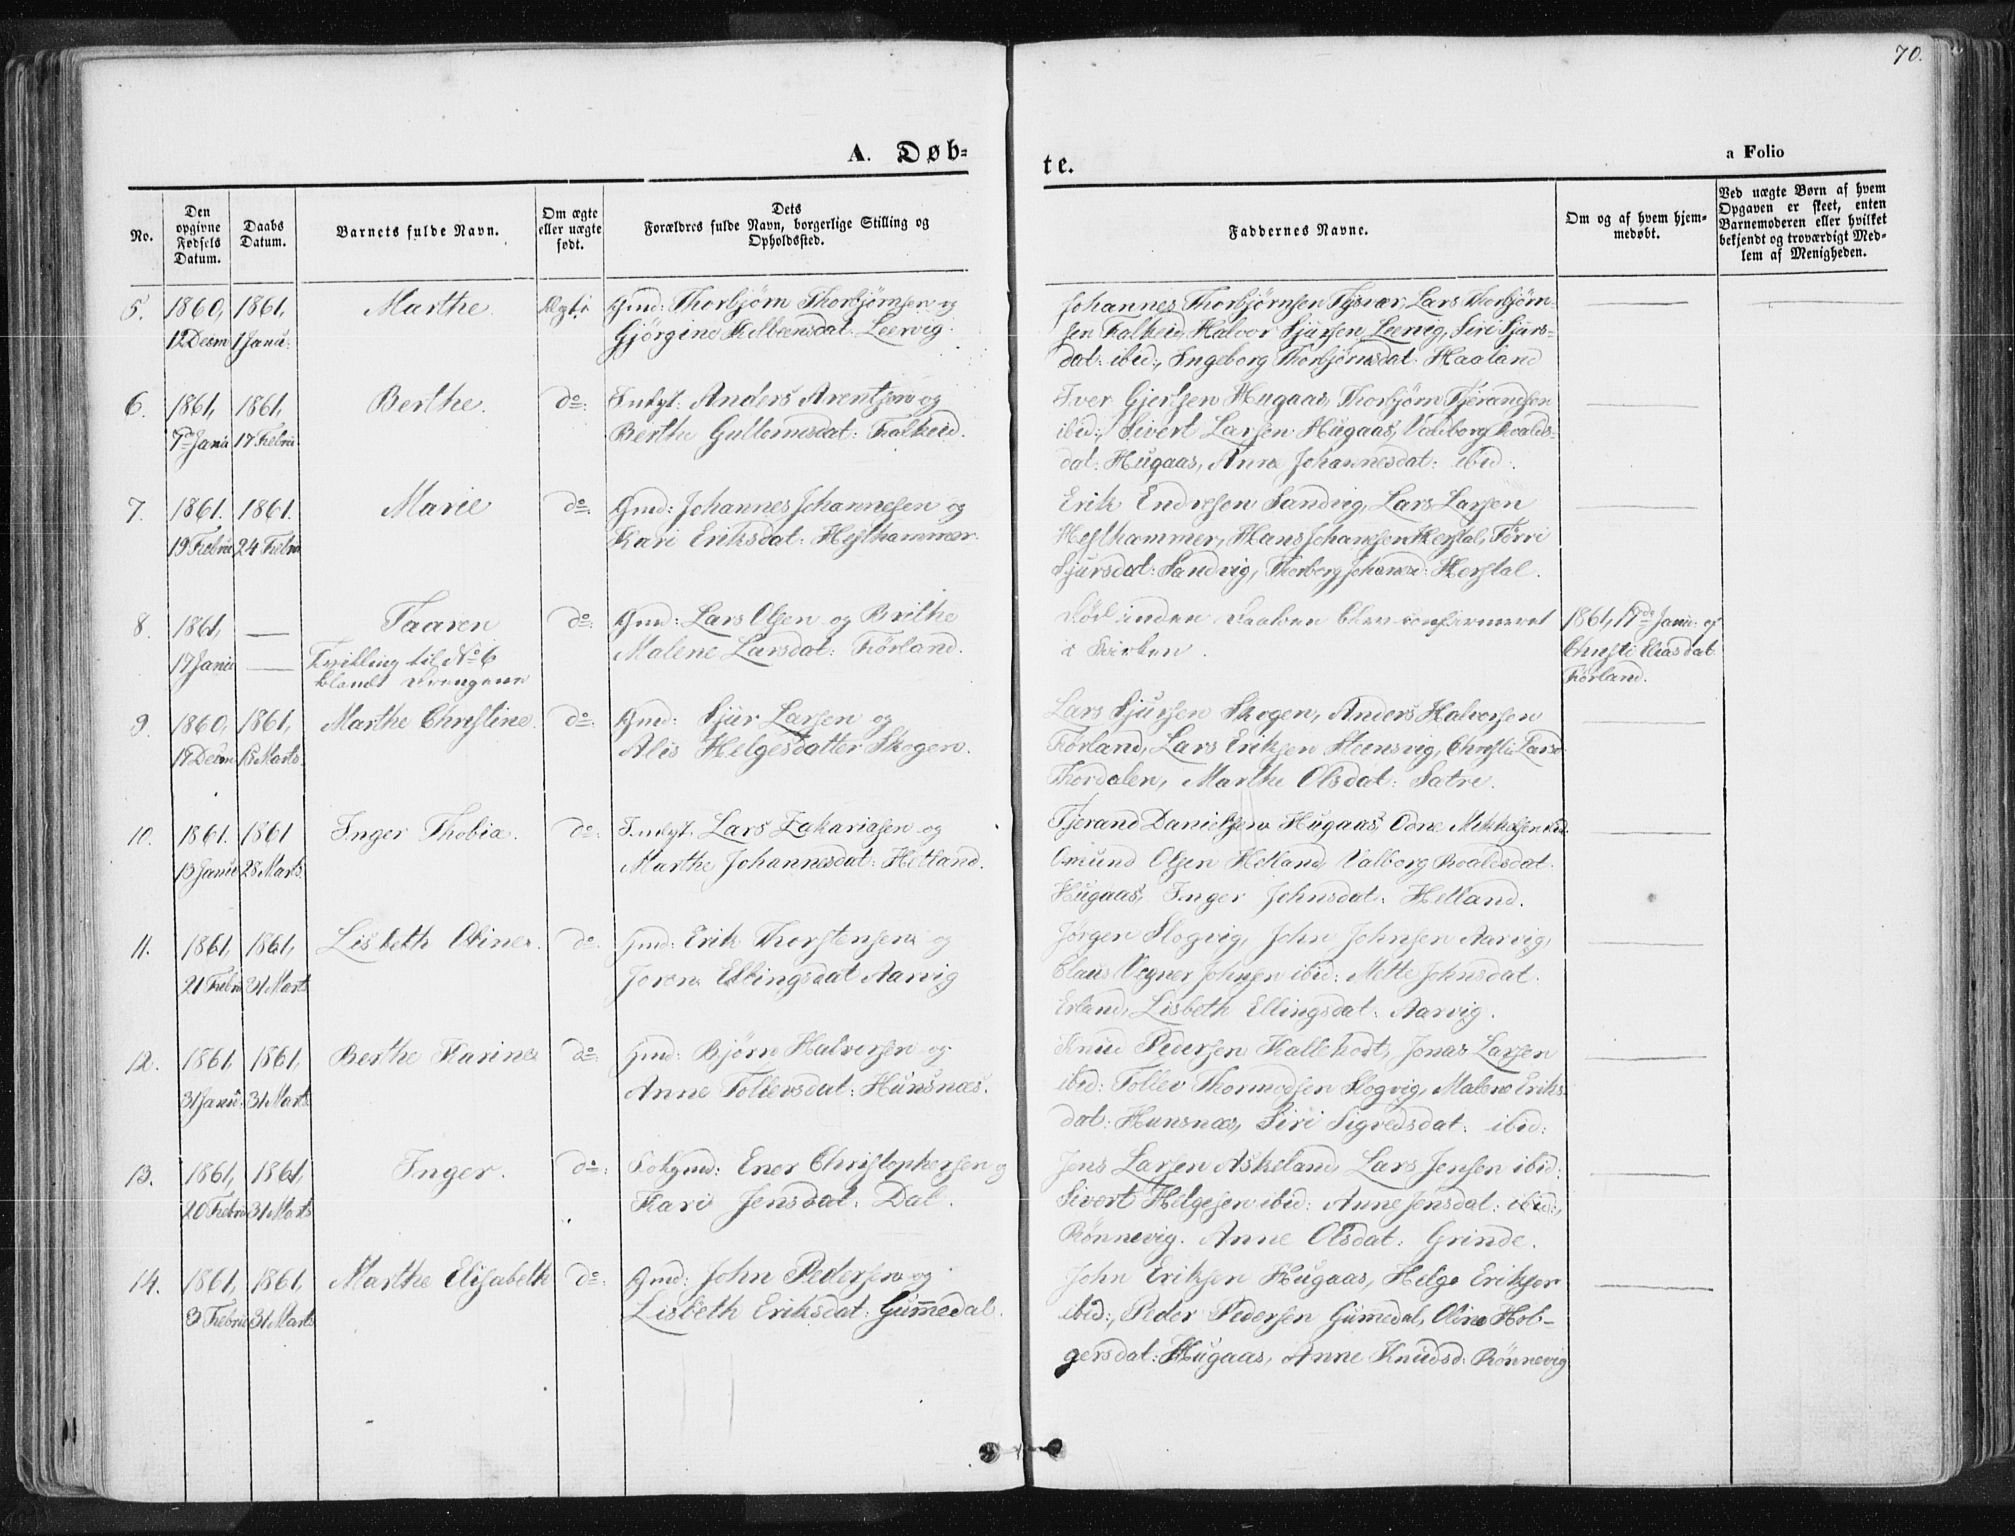 70.
A. Døb-
te.
a Folio
No.
Den opgivne Fødsels Datum.
Daabs Datum.
Barnets fulde Navn.
Om ægte eller uægte født.
Dets Forældres fulde Navn, borgerlige Stilling og Opholdssted.
Faddernes Navne.
Om og af hvem hjem-
medøbt.
Ved uægte Børn af hvem
Opgaven er skeet, enten
Barnemoderen eller hvilket
bekjendt og troværdigt Med-
lem af Menigheden.
5. 1860, 1861, Marthe. Ægte Gmd: Thorbjørn Thorbjørnsen og
12 Desm 1 Janu: Gjørgine Leervig.
Johannes Thorbjørnsen Tysvær, Lars Thorbjørn-
sen Falkeid, Halvor Sjursen Leervig, Siri Sjurs-
dat: ibid:, Ingeborg Thorbjørnsdat: Haaland
6. 1861, 1861, Berthe. do: Indst: Anders Arentsen og
7de Janu 17 Febru Berthe Guttormsdat: Falkeid.
Iver Gjertsen Hugaas, Thorbjørn Tjerandsen
ibid:, Sivert Larsen Hugaas, Valborg Roalds-
dat: Hugaas, Anna Johannesdat: ibid:
7. 1861. 1861. Marie do: Gmd: Johannes Johannesen og
19 Febru 24 Febru Kari Eriksdat: Hesthammer.
Erik Endresen Sandvig, Lars Larsen
Hesthammer, Hans Johansen Herstal, Torri
Sjursdat: Sandvig, Thorborg Johansd: Herstal.
8. 1861, — Taaren do: Gmd: Lars Olsen og Brithe
17 Janu — Tvilling til No 6 Malene Larsdat: Førland.
blandt Drengene
Død inden Daaben blev confirmeret
i Kirken.
1861, 17de Janu: af
Christi Eliasdat:
Førland.
9. 1860, 1861, Marthe Christine. do: Gmd: Sjur Larsen og
17 Desm Marts Alis Helgesdatter Skogen.
Lars Sjursen Skogen, Anders Halvorsen
Førland, Lars Eriksen Steensvig, Christi Larsd
Thordalen, Marthe Olsdat: Sætre.
10. 1861. 1861 Inger Thobia. do: Indst. Lars Zakariasen og
13 Janu 28 Marts. Marthe Johannesdat: Hetland.
Tjerand Danielsen Hugaas, Odne Mikkelsen ibd.
Omund Olsen Hetland, Valborg Roaldsdat:
Hugaas, Inger Johnsdat: Hetland.
11. 1861, 1861, Lisbeth Oline. do: Gmd: Erik Thorstensen og
21 Febru 31 Marts Joren Ellingsdat Aarvig
Jørgen Slogvig, John Johnsen Aarvig,
Claus Vegner Johnsen ibid: Mette Johnsdat:
Erland, Lisbeth Ellingsdat: Aarvig.
12. 1861 1861, Berthe Karine do: Gmd: Bjørn Halvorsen og
31 Janu. 31 Marts Anne Tollersdat: Hunsnæs.
Knud Pedersen Kallekodt, Jonas Larsen
ibid: Tollev Thormodsen Slogvig, Malene Eriks-
dat: Hunsnæs, Siri Sigvedsdat: ibid:
13. 1861, 1861, Inger. do: Enor Christophersen og
20 Febru 31 Marts Kari Jensdat: Dal.
Jens Larsen Askeland, Lars Jensen ibid:
Sivert Helgesen ibid: Anne Jensdat: ibid:,
Rønnevig. Anne Olsdat: Grinde.
14. 1861, 1861, Marthe Elisabeth do: Gmd: John Pedersen og
3 Febru 31 Marts Lisbeth Eriksdat: Gummedal.
John Eriksen Hugaas, Helge Eriksen
ibid:, Peder Pedersen Gummedal, Oline Hol-
gersdat: Hugaas, Anne Knudsd: Rønnevig